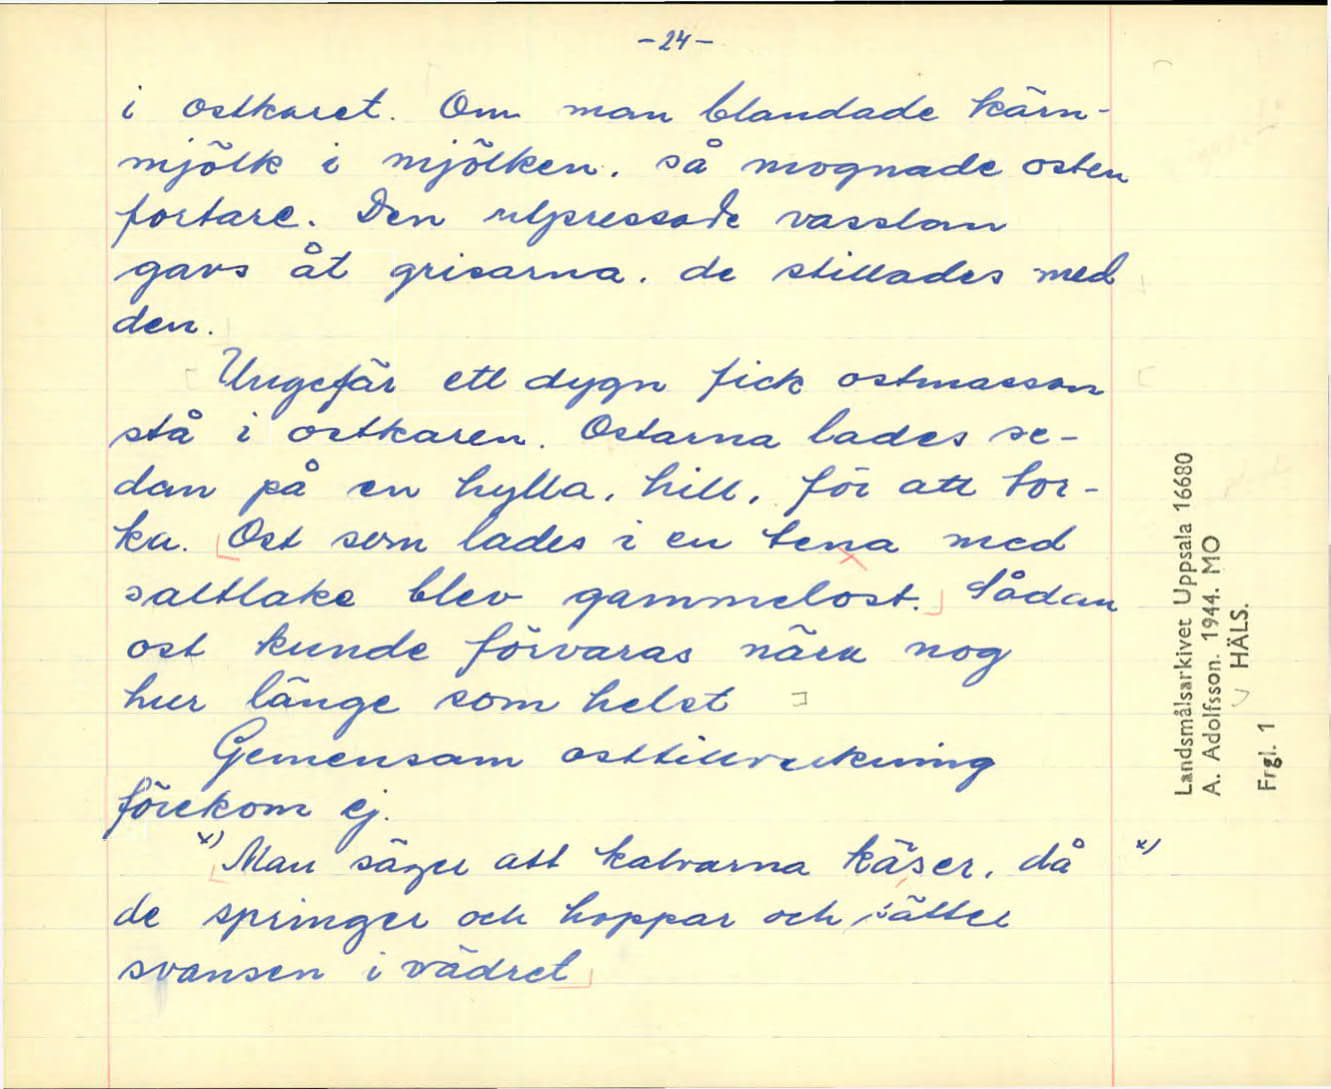 -24-
i ostkaret. Om man blandade kärn-
mjölk i mjölken, så mognade osten
fortare. Den utpressade vasslan
gavs åt grisarna, de stillades med
den.
Ungefär ett dygn fick ostmassan
stå i ostkaren. Ostarna lades se-
dan på en hylla, hill, för att tor-
ka. Ost som lades i en tena med
saltlake blev gammelost. Sådan
ost kunde förvaras nära nog
hur länge som helst
Gemensam osttillverkning
förekom ej.
x) Man säger att kalvarna käser, då x)
de springer och hoppar och sätter
svansen i vädret
Landsmålsarkivet Uppsala 16680
A. Adolfsson. 1944. MO
HÄLS.
Frgl. 1